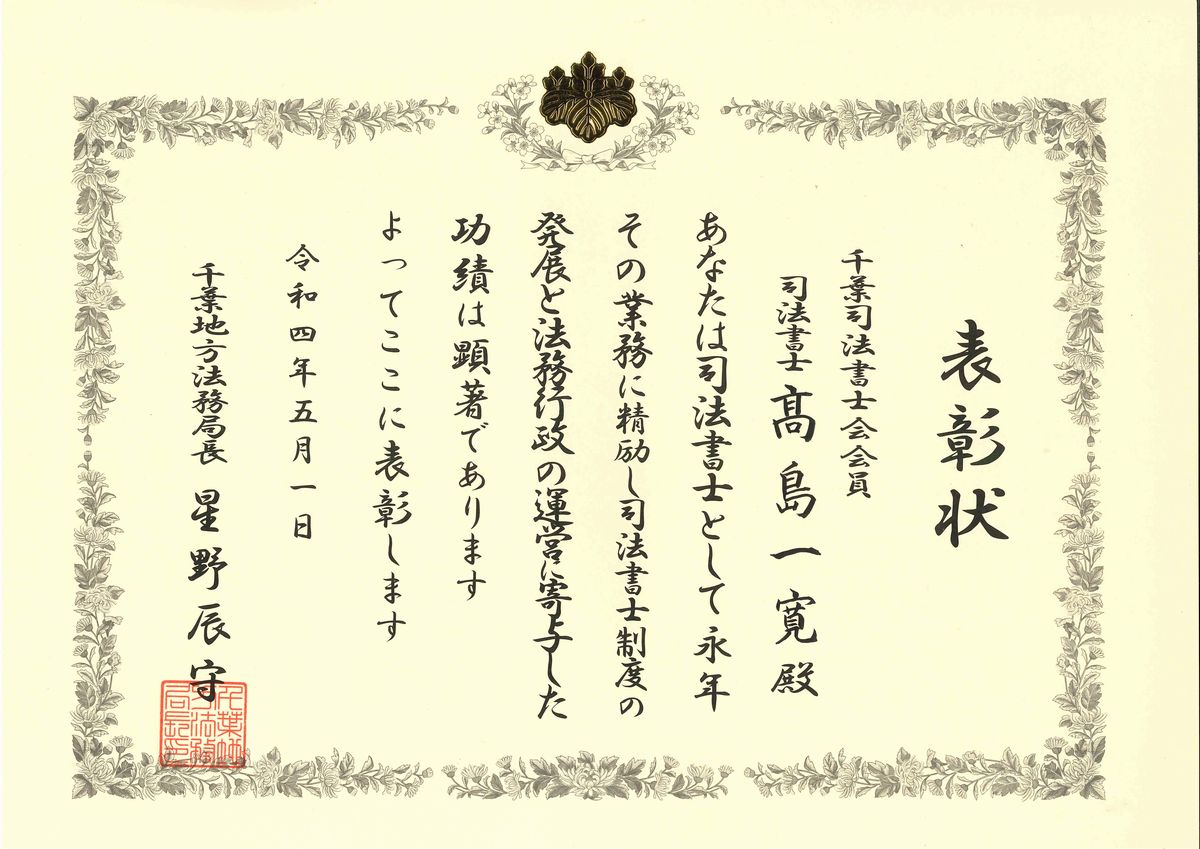 表彰状
千葉司法書士会会員
司法書士 髙島一寛殿
あなたは司法書士として永年
その業務に精励し司法書士制度の
発展と法務行政の運営に寄与した
功績は顕著であります
よってここに表彰します
令和四年五月一日
千葉地方法務局長 星野辰守
千葉地方法務局長印